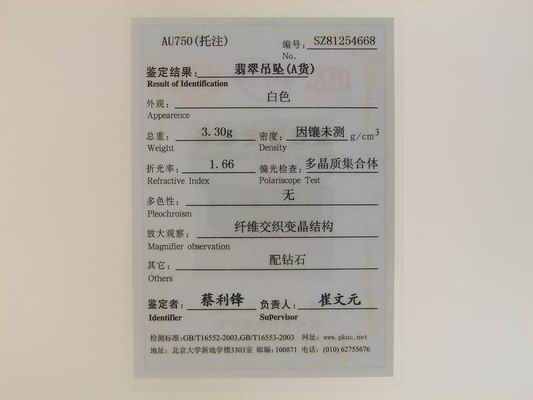 AU750(托注) 编号: SZ81254668
No.
鉴定结果: 翡翠吊坠(A货)
Result of Identification
外观: 白色
Appearence
总重: 3.30g 密度: 因镶未测 g/cm³
Weight Density
折光率: 1.66 偏光检查: 多晶质集合体
Refractive Index Polariscope Test
多色性: 无
Pleochroism
放大观察: 纤维交织变晶结构
Magnifier observation
其它: 配钻石
Others
鉴定者: 蔡利锋 负责人: 崔文元
Identifier Supervisor
检测标准:GB/T16552-2003,GB/T16553-2003 网址: www.pkuc.net
地址: 北京大学新地学楼3303室 邮编:100871 电话: (010) 62755676